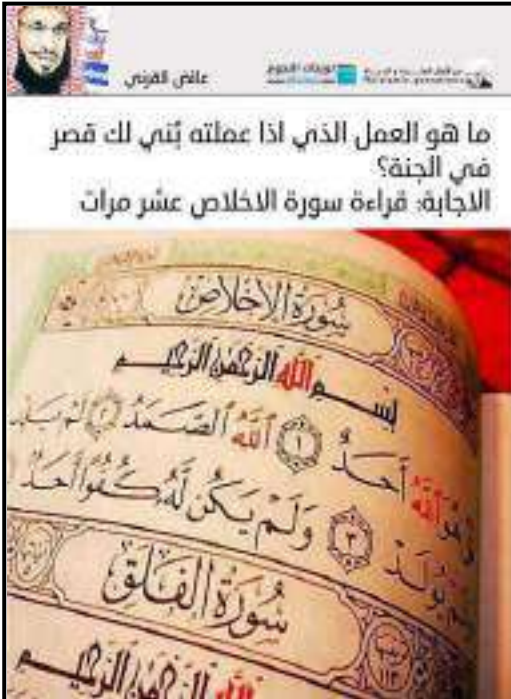 عائض القرني
ما هو العمل الذي اذا عملته بُني لك قصر
في الجنة؟
الاجابة: قراءة سورة الاخلاص عشر مرات
سُورَةُ الإِخْلَاصِ
بِسْمِ اللَّهِ الرَّحْمَٰنِ الرَّحِيمِ
هُوَ ٱللَّهُ أَحَدٌ ١ ٱللَّهُ ٱلصَّمَدُ ٢ لَمْ
يُولَدْ ٣ وَلَمْ يَكُن لَّهُۥ كُفُوًا أَحَدٌ
سُورَةُ الفَلَقِ
اللَّهِ الرَّحْمَٰنِ الرَّحِيمِ